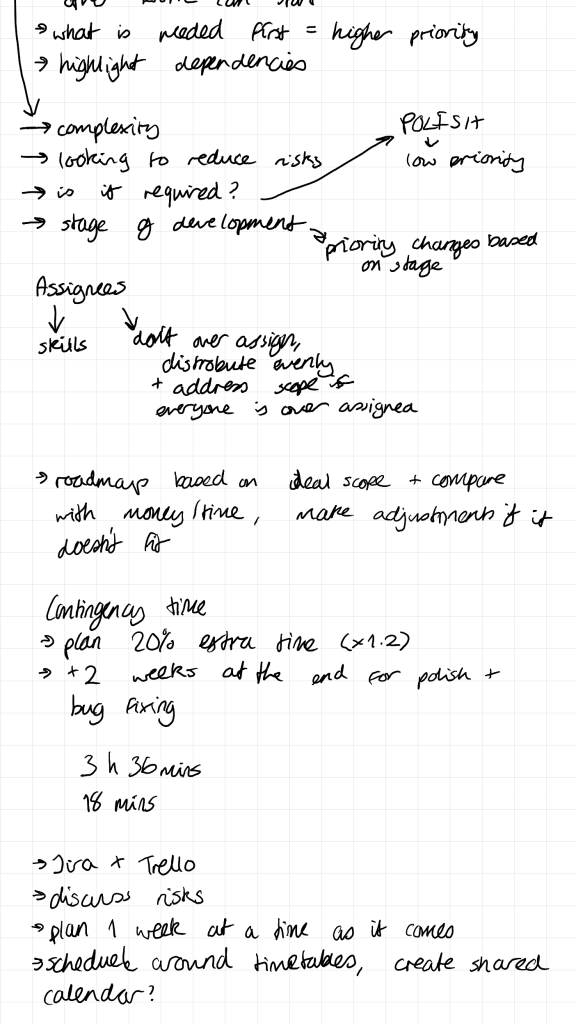 → what is needed first = higher priority
→ highlight dependencies
→ complexity
→ looking to reduce risks
→ is it required?
POLISH
↓
low priority
→ stage of development
→ priority changes based
on stage
Assignees
↓ ↘
skills
don't over assign,
distrobute evenly
+ address scope if
everyone is over assigned
→ roadmap based on ideal scope + compare
with money/time, make adjustments if it
doesn't fit
Contingency time
→ plan 20% extra time (x1.2)
→ +2 weeks at the end for polish +
bug fixing
3 h 36 mins
18 mins
→ Jira + Trello
→ discuss risks
→ plan 1 week at a time as it comes
→ schedule around timetables, create shared
calendar?